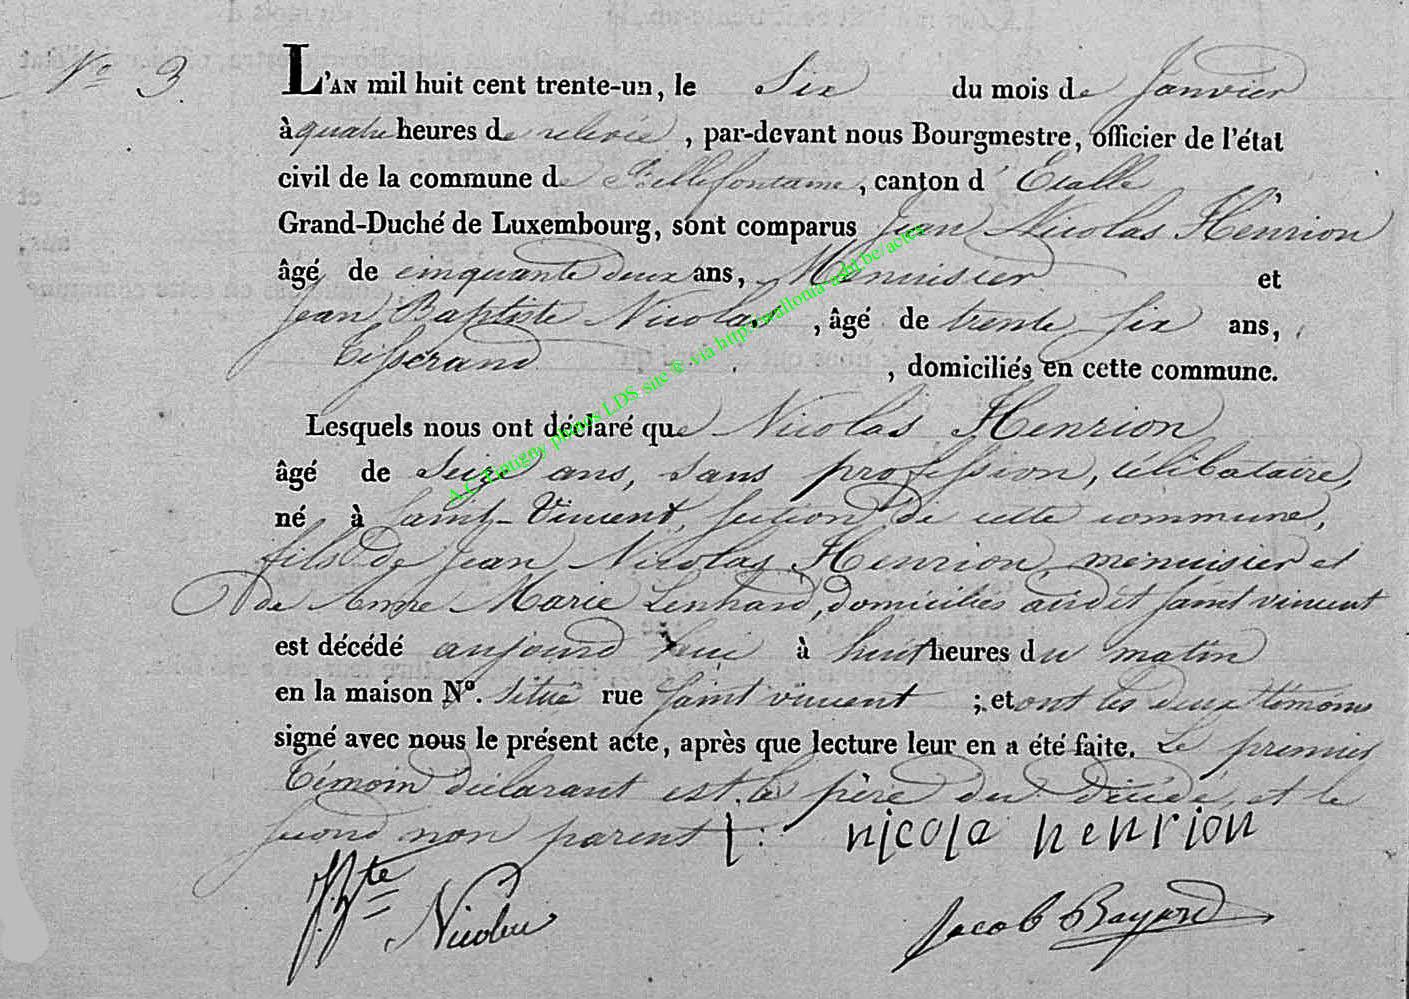 N° 3.
L'AN mil huit cent trente-un, le Six du mois de Janvier
à quatre heures de relevée, par-devant nous Bourgmestre, officier de l'état
civil de la commune de Bellefontaine, canton d'Etalle,
Grand-Duché de Luxembourg, sont comparus Jean Nicolas Henrion
âgé de cinquante deux ans, Menuisier et
Jean Baptiste Nicolas, âgé de trente six ans,
tisserand, domiciliés en cette commune.
Lesquels nous ont déclaré que Nicolas Henrion
âgé de Seize ans, sans profession, célibataire,
né à Saint-Vincent, section de cette commune,
fils de Jean Nicolas Henrion menuisier et
de Anne Marie Lenhard, domiciliés audit Saint vincent
est décédé aujourd'hui à huit heures du matin
en la maison N°. située rue Saint vincent ; et ont les deux témoins
signé avec nous le présent acte, après que lecture leur en a été faite. Le premier
témoin déclarant est le père du décédé, et le
second non parent
nicola henrion
JBte Nicolas
Jacob Bayard
A.C. Tintigny photos LDS site & via http://wallonia-asbl.be/actes